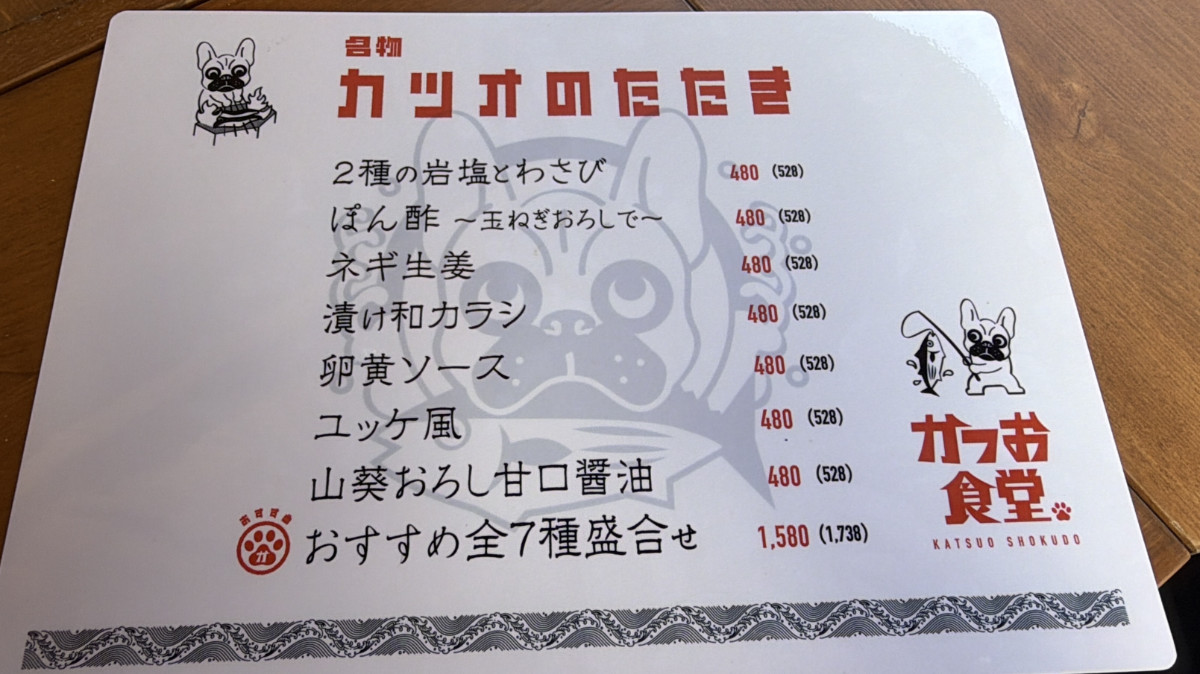 名物
カツオのたたき
2種の岩塩とわさび 480 (528)
ぽん酢 ～玉ねぎおろしで～ 480 (528)
ネギ生姜 480 (528)
漬け和カラシ 480 (528)
卵黄ソース 480 (528)
ユッケ風 480 (528)
山葵おろし甘口醤油 480 (528)
おすすめ
おすすめ全7種盛合せ 1,580 (1,738)
かつお
食堂
KATSUO SHOKUDO